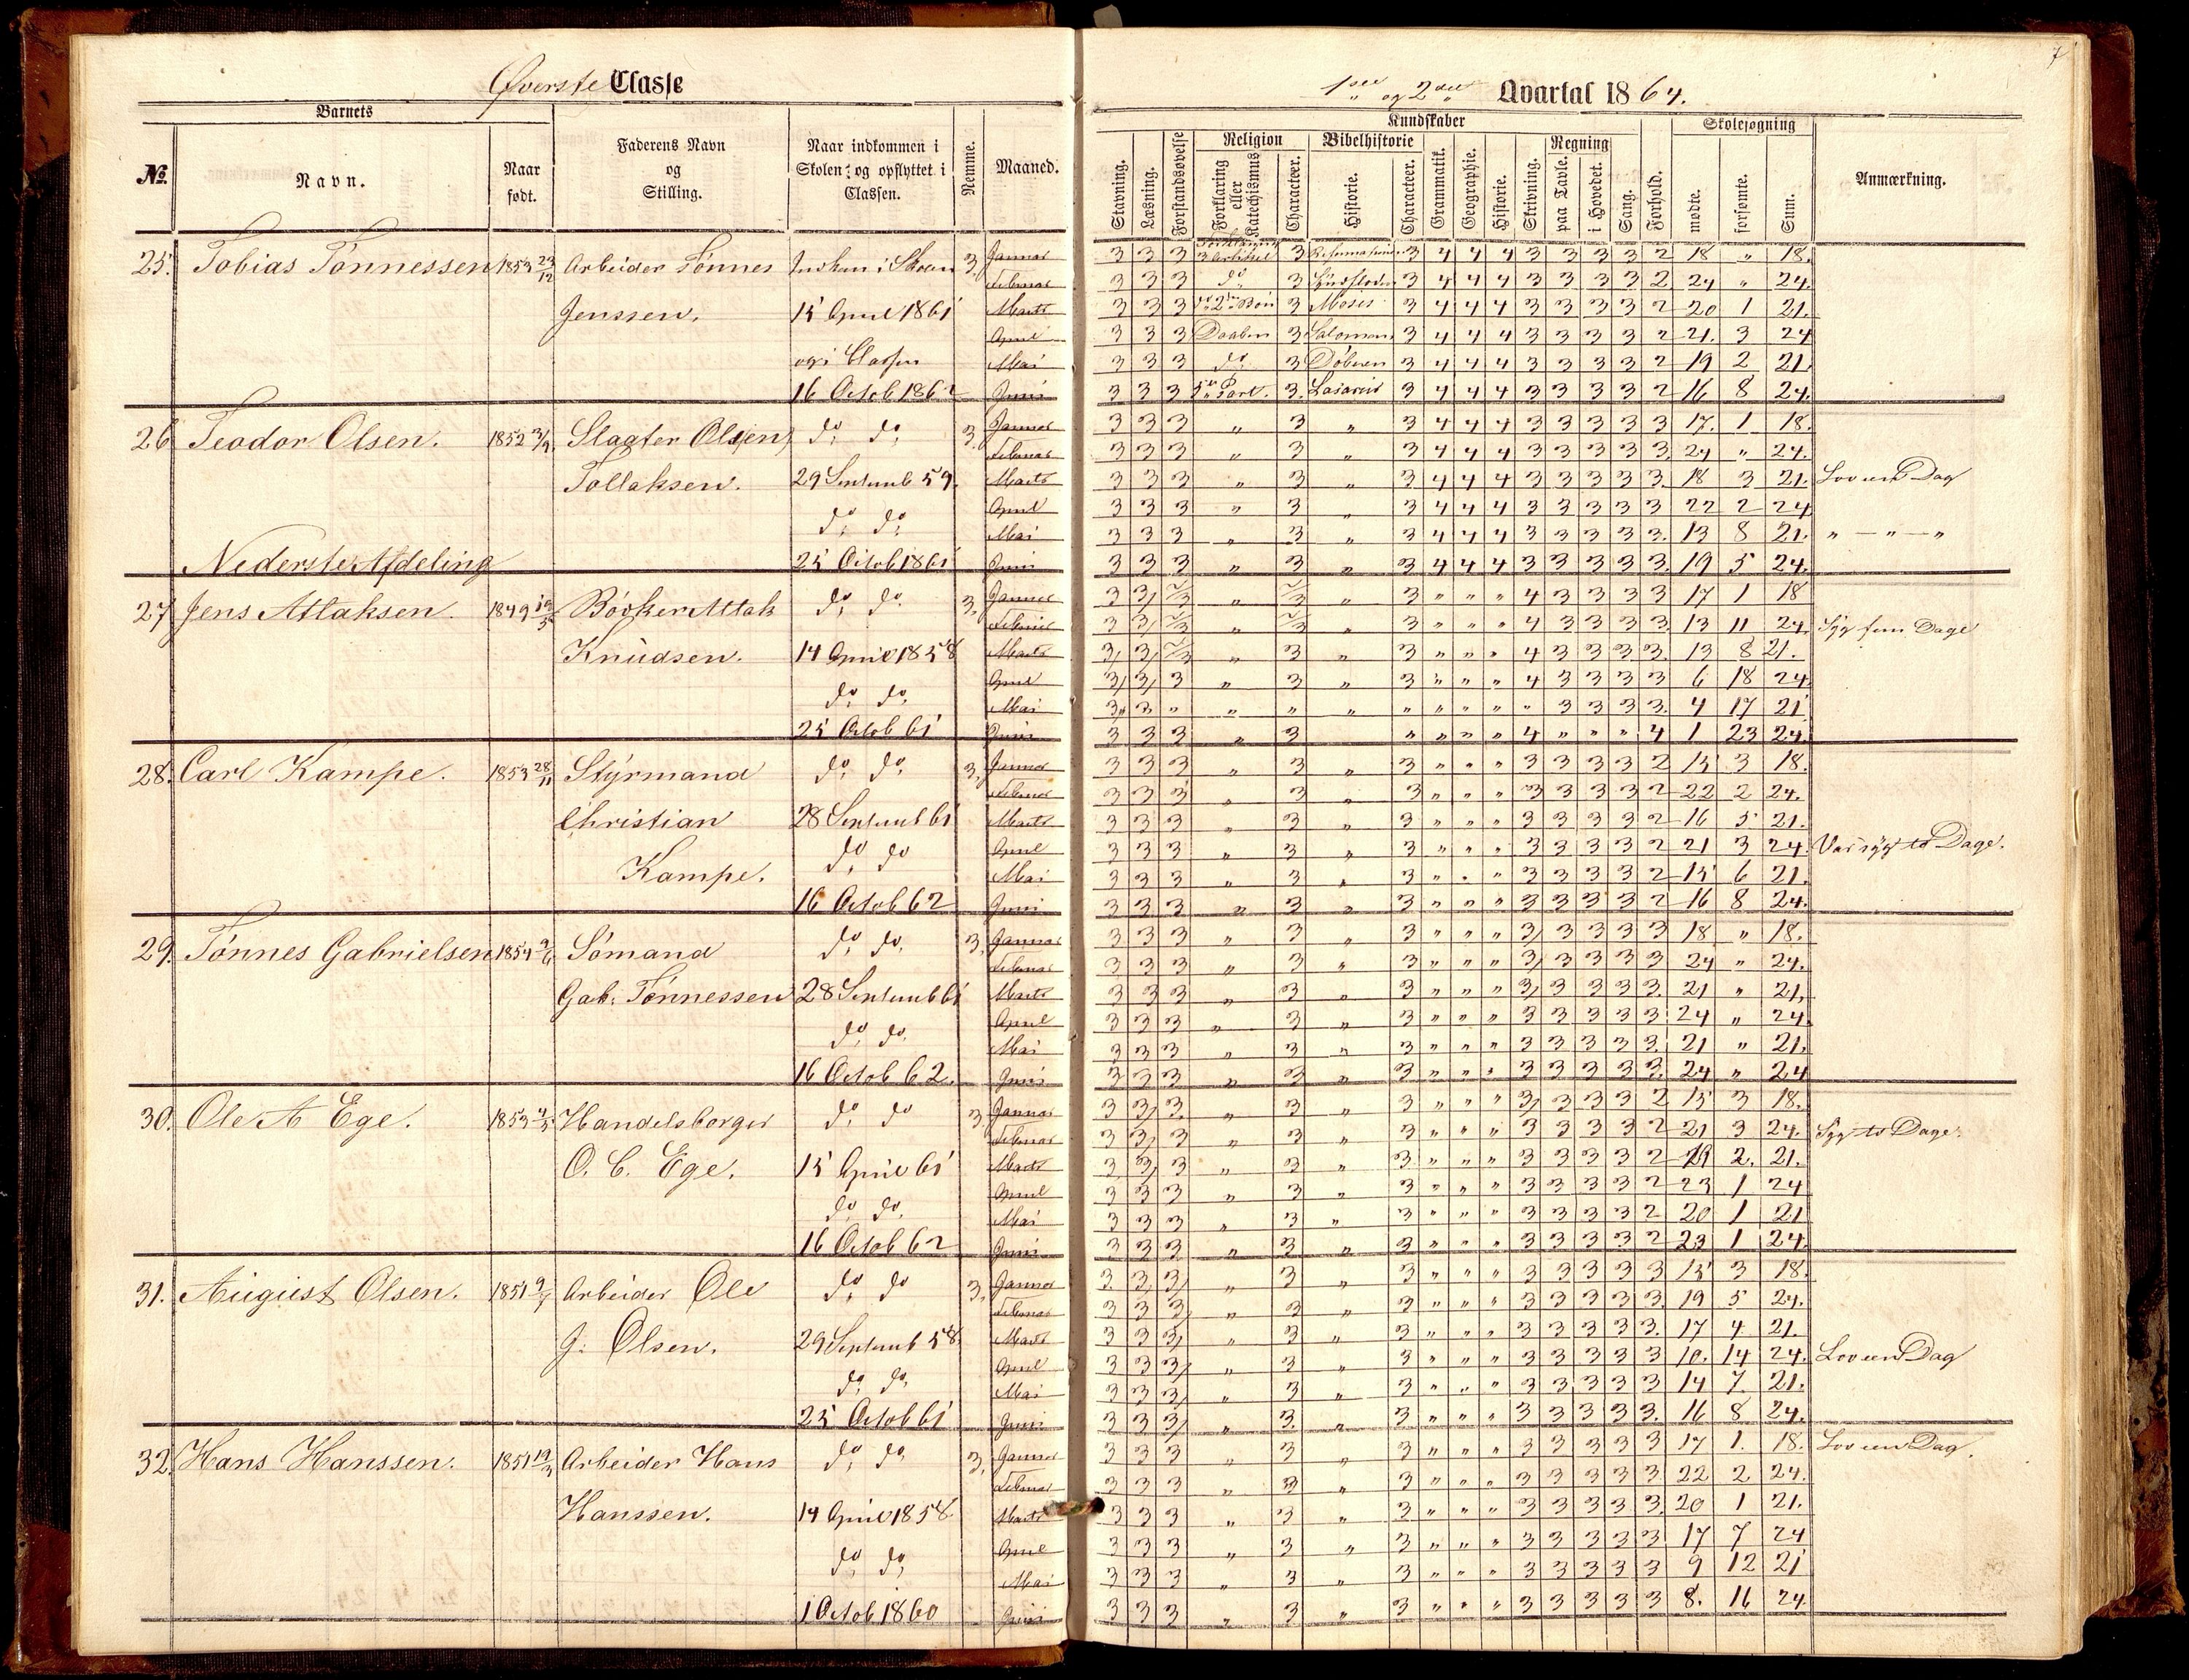 Øverste Classe
Barnets
No. Navn. Naar født. Faderens Navn og Stilling. Naar indkommen i Skolen: og opflyttet i Classen. Nemme. Maaned.
25. Tobias Tönnessen 1853 23/12 Arbeider Tönnes 3, Januar
Februar
Jenssen. 15 April 1861 Marts
April
og i Classen Mai
16 Octob 1862 Juni
26 Teodor Olsen. 1852 Slagter Olsen, do, do, 3, Januar
Februar
Tollaksen. 29 Septemb 59. Marts
April
do, do, Mai
Nederste Afdeling 25 Octob 1861 Juni
27 Jens Atlaksen. 1849 Bödker Attak do, do. 3, Januar
Februar
Knudsen. 14 April 1858 Marts
April
do, do, Mai
25 Octob 61 Juni
28. Carl Kampe. 1853 28/11 Styrmand do, do, 3, Januar
Februar
Christian 28 Septemb 61 Marts
do, do April
Kampe. Mai
16 Octob 62 Juni
29. Tönnes Gabrielsen 1854 9/6 Sömand do, do, 3, Januar
Februar
Gab: Tönnessen 28 Septemb 61 Marts
do, do, April
Mai
16 Octob 62. Juni
30. Ole A Ege. 1853 4/5 Handelsborger do, do 3, Januar
Februar
O. C. Ege. 15 April 61 Marts
April
do, do, Mai
16 Octob 62 Juni
31. August Olsen. 1851 Arbeider Ole do, do 3, Januar
Februar
J: Olsen. 29 Septemb 58 Marts
April
do, do, Mai
25 Octob 61 Juni
32. Hans Hanssen. 1851 19/3 Arbeider Hans do, do, 3, Januar
Februar
Hanssen. 14 April 1858 Marts
April
do, do, Mai
1 Octob 1860 Juni
7
1ste og 2det Qvartal 1864.
Kundskaber Skolesøgning
Religion Bibelhistorie Regning
Stavning. Læsning. Forstandsøvelse Forklaring eller Katechismus Character. Historie. Characteer. Grammatik. Geographie. Historie. Skrivning. paa Tavle. i Hovedet. Sang. Forhold. mødte. forsømte. Sum. Anmærkning.
3 3 3 3 Artikel 3 3 4 4 4 3 3 3 3 2 18 " 18.
3 3 3 do 3 Syndfloden 3 4 4 4 3 3 3 3 2 24 " 24.
3 3 3 2 Bön 3 Moses 3 4 4 4 3 3 3 3 2 20 1 21.
3 3 3 Daaben 3 Salomon 3 4 4 4 3 3 3 3 2 21. 3 24
3 3 3 do 3 Döberen 3 4 4 4 3 3 3 3 2 19 2 21.
3 3 3 5te Part. 3. Lasarus 3 4 4 4 3 3 3 3 2 16 8 24.
3 3 3 " 3 " 3 4 4 4 3 3 3 3 3 17. 1 18.
3 3 3 " 3 " 3 4 4 4 3 3 3 3 3. 24 " 24.
3 3 3 " 3 " 3 4 4 4 3 3 3 3 3. 18 3 21. Lov een Dag
3 3 3 " 3 " 3 4 4 4 3 3 3 3 3 22 2 24
3 3 3 " 3 " 3 4 4 4 3 3 3 3 3. 13 8 21. " — " — "
3 3 3 " 3 " 3 4 4 4 3 3 3 3 3. 19 5 24.
3 3, 2/3 " 2/3 " 3 " " " 4 3 3 3 3 17 1 18
3 3, 2/3 " 2/3 " 3 " " " 4 3 3 3 3. 13 11 24. Syg fem Dage
3, 3, 2/3 " 3 " 3 " " " 4 3 3 3 3. 13 8 21.
3, 3, 3 " 3 " 3 " " " 4 3 3 3 3 6 18 24
3, 3 " " " " " " " " " 3 3 3 3. 4 17 21
3 3 3 " 3 " " " " 4 " " " 4 1 23 24.
3 3 3 " 3 " 3 " " " 3 3 3 3 2 15 3 18.
3 3 3 " 3 " 3 " " " 3 3 3 3 2 22 2 24.
3 3 3 " 3 " 3 " " " 3 3 3 3 2 16 5 21.
3 3 3 " 3 " 3 " " " 3 3 3 3 2 21 3 24. Var syg to Dage.
3 3 3 " 3 " 3 " " " 3 3 3 3 2 15 6 21.
3 3 3 " 3 " 3 " " " 3 3 3 3 2 16 8 24.
3 3 3 " 3 " 3 " " " 3, 3 3 3 3 18 " 18.
3 3 3 " 3 " 3 " " " 3, 3 3 3 3 24 " 24.
3 3 3 " 3 " 3 " " " 3, 3 3 3 3. 21 " 21,
3 3 3 " 3 " 3 " " " 3 3 3 3 3 24 " 24.
3 3 3 " 3 " 3 " " " 3 3 3 3 3. 21 " 21.
3 3 3 " 3 " 3 " " " 3 3 3 3 3. 24 " 24
3 3, 3 " 3 " 3 " " " 3, 3 3 3 2 15 3 18.
3 3, 3 " 3 " 3 " " " 3 3 3 3 2 21 3 24. Syg to Dage.
3 3, 3 " 3 " 3 " " " 3 3 3 3 2 19 2. 21.
3 3 3 " 3 " 3 " " " 3 3 3 3 2 23 1 24
3 3 3 " 3 " 3 " " " 3 3 3 3 2 20 1 21
3 3 3 " 3 " 3 " " " 3 3 3 3 2 23 1 24.
3 3 3, " 3 " 3 " " " 3 3 3 3 3 15 3 18.
3 3 3, " 3 " 3 " " " 3 3 3 3 3. 19 5 24.
3 3 3, " 3 " 3 " " " 3 3 3 3 3. 17 4 21.
3 3 3, " 3 " 3 " " " 3 3 3 3 3 10. 14 24. Lov een Dag
3 3 3, " 3 " 3 " " " 3 3 3 3 3 14 7 21.
3 3 3, " 3. " 3 " " " 3 3 3 3 3. 16 8 24.
3 3 3 " 3 " 3 " " " 3 3 3 3 3 17 1. 18. Lov een Dag.
3 3 3 " 3 " 3 " " " 3 3 3 3 3 22 2 24.
3 3 3 " 3 " 3 " " " 3 3 3 3 3. 20 1 21.
3 3 3 " 3 " 3 " " " 3 3 3 3 3 17 7 24
3 3 3 " 3 " 3 " " " 3 3 3 3 3 9 12 21
3 3 3 " 3 " 3 " " " 3 3 3 3 3 8. 16 24